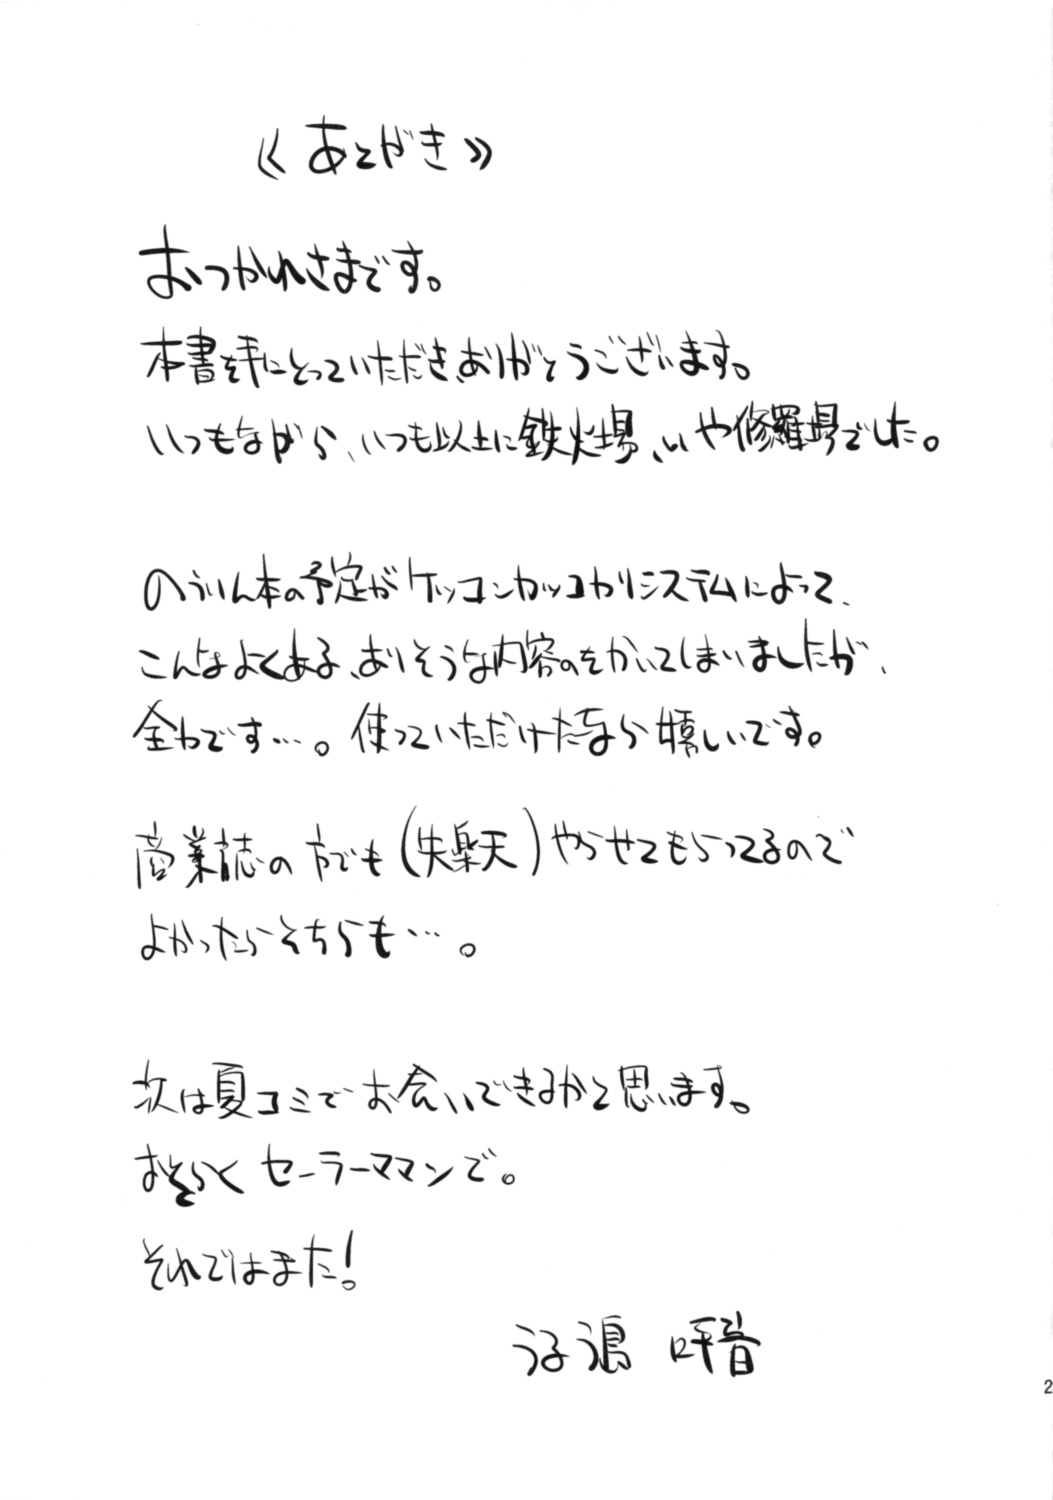 《あとがき》
おつかれさまです。
本書を手にとっていただき、ありがとうございます。
いつもながら、いつも以上に鉄火場、いや修羅場でした。
のうりん本の予定がケッコンカッコカリシステムによって、
こんなよくある、ありそうな内容のをかいてしまいましたが、
全わです…。使っていただけたなら嬉しいです。
商業誌の方でも(失楽天)やらせてもらってるので
よかったらそちらも…。
次は夏コミでお会いできるかと思います。
おそらくセーラーママンで。
それではまた!
うるう浪 呼音
2